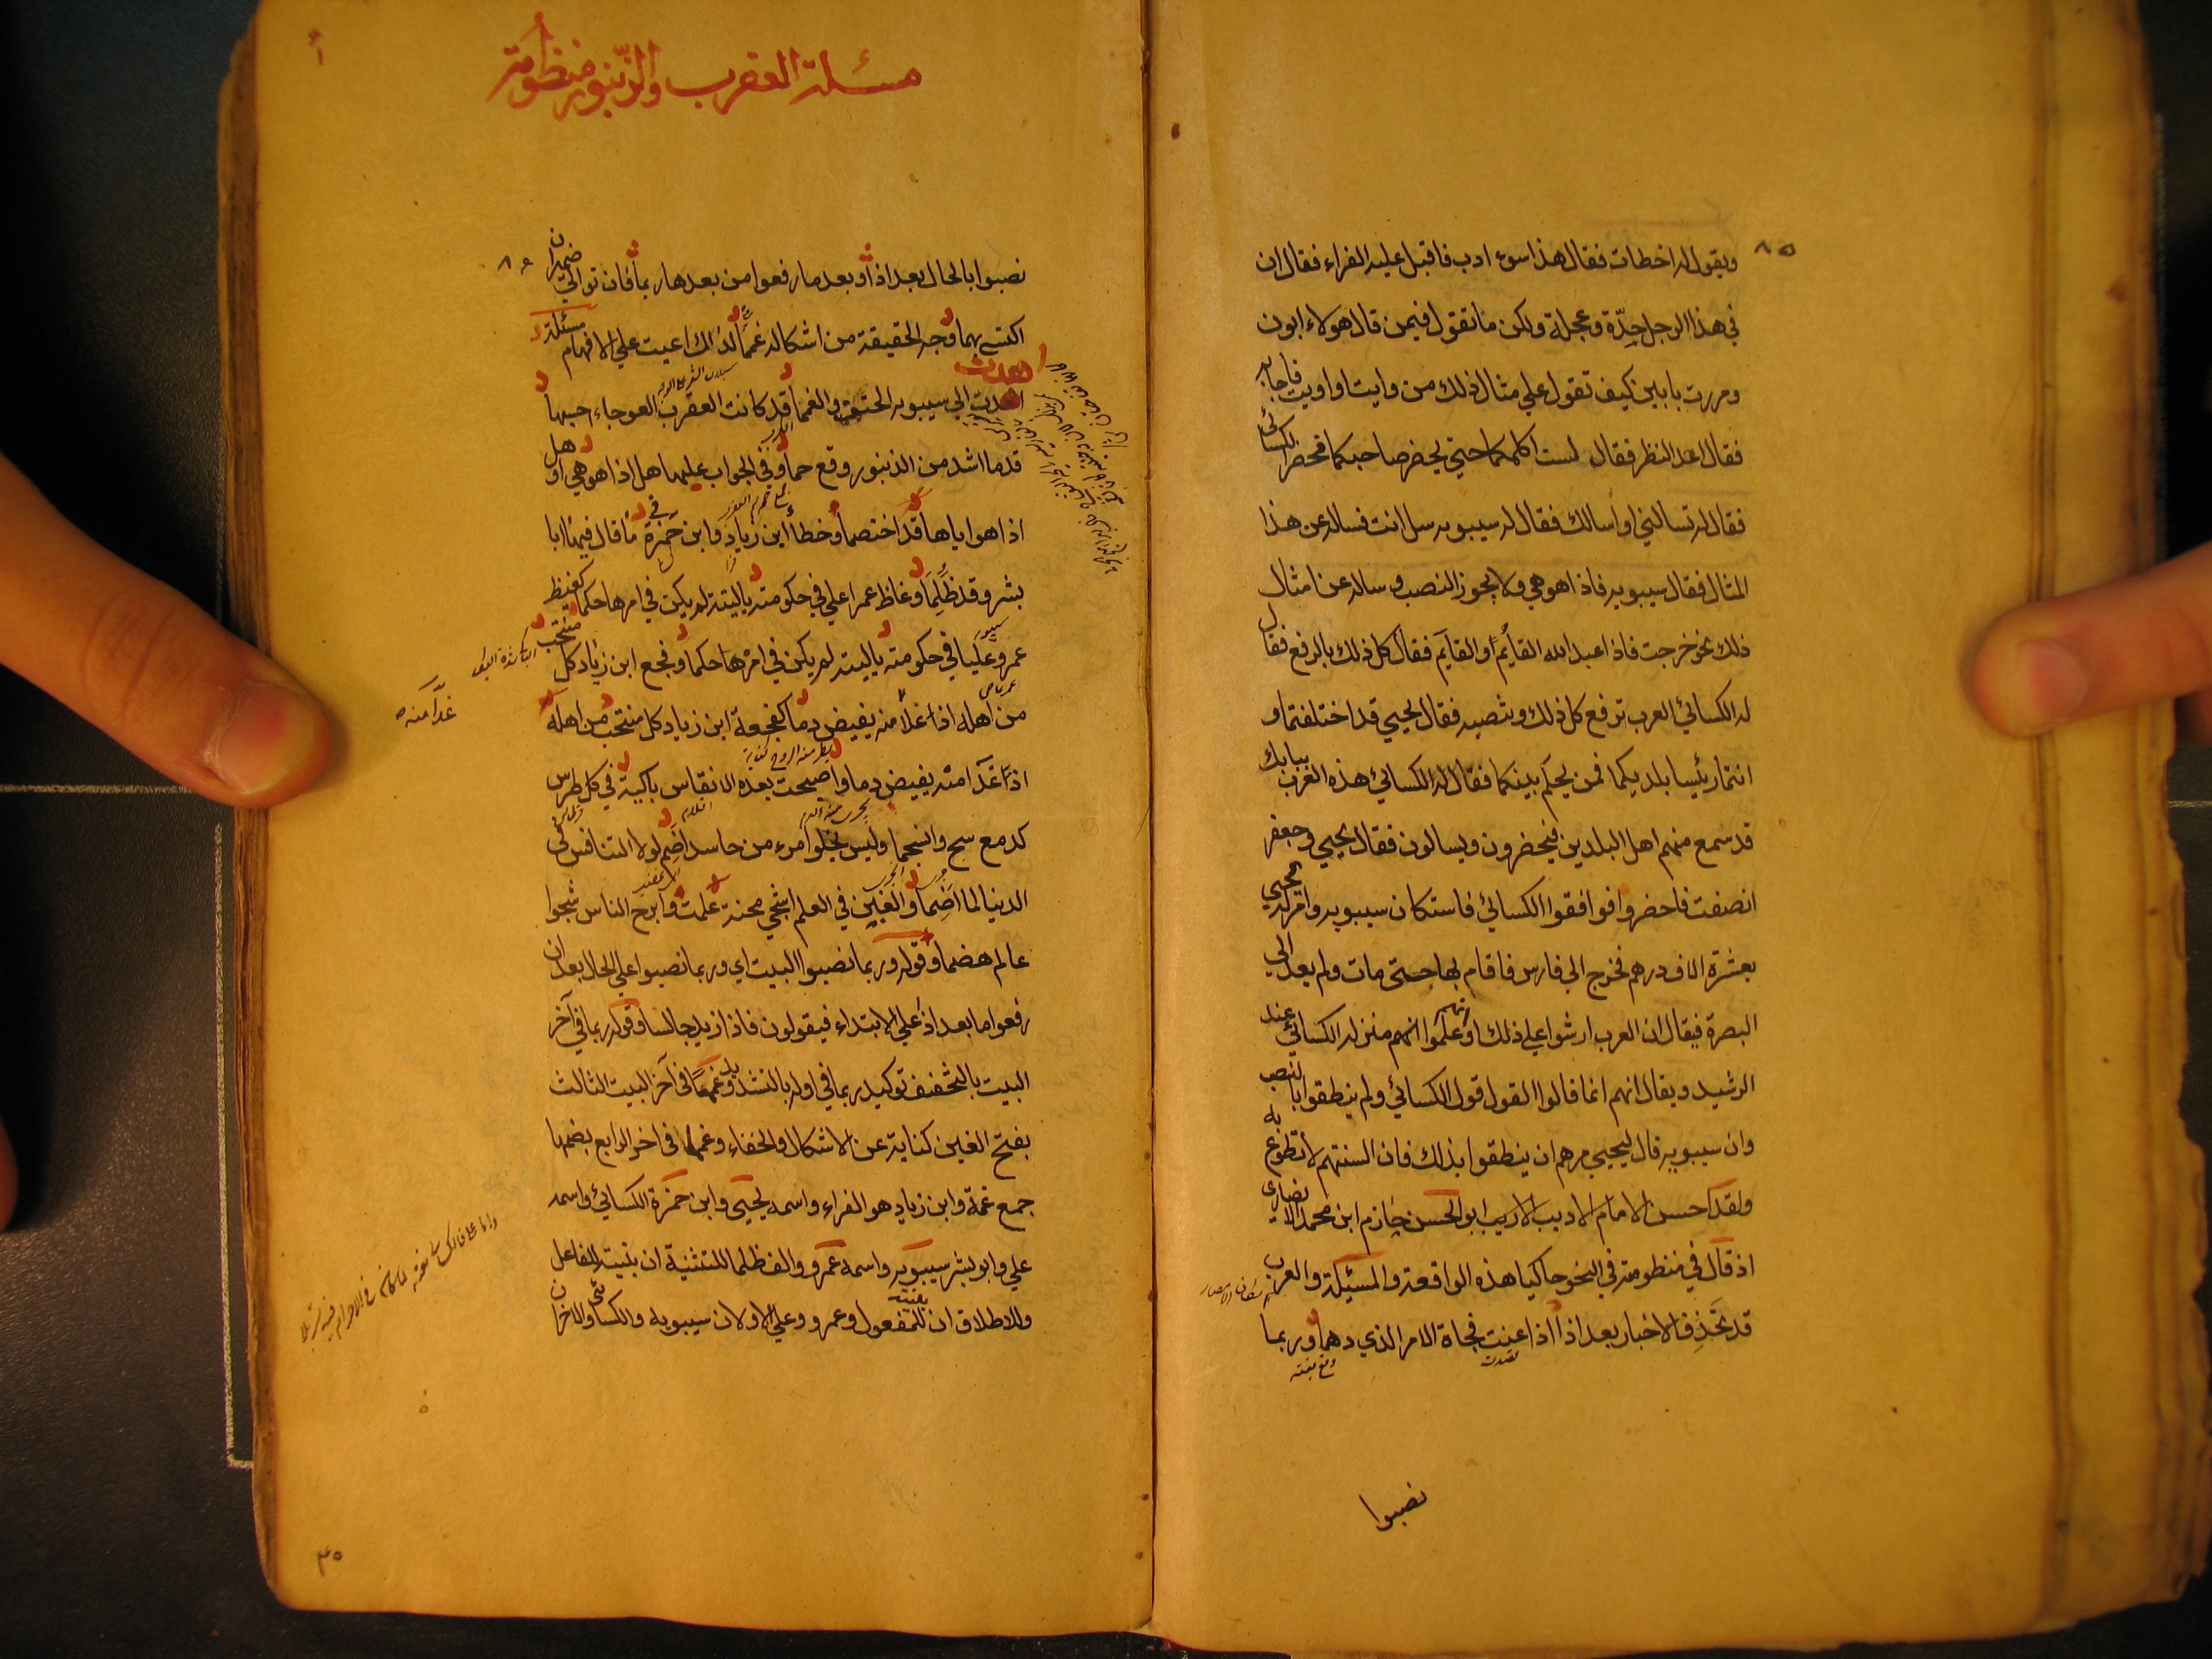 ٨٥
ويقول له اخطات فقال هذا سوء ادب فاقبل عليه الفراء فقال ان
في هذا الرجل حِدّة وعجلة ولكن ما تقول فيمن قال هولاء ابون
ومررت بابين كيف تقول علي مثال ذلك من وايت او اويت فاجابه
فقال اعد النظر فقال لست اكلمكما حتي يحضر صاحبكما فحضر الكسائي
فقال له تسالني او اسالك فقال له سيبويه سل انت فساله عن هذا
المثال فقال سيبويه فاذا هو هي ولا يجوز النصب وساله عن امثال
ذلك نحو خرجت فاذا عبد الله القايُم أو القايَم فقال كل ذلك بالرفع فقال
له الكسائي العرب ترفع كل ذلك وتنصبه فقال يحيي قد اختلفتما و
انتما رئيسا بلديكما فمن يحكم بينكما فقال له الكسائي هذه العرب ببابك
قد سمع منهم اهل البلدين فيحضرون ويسالون فقال يحيي وجعفر
انصفت فاحضروا فوافقوا الكسائي فاستكان سيبويه وامر له يحيي
بعشرة الاف درهم فخرج الي فارس فاقام بها حتى مات ولم يعد الي
البصرة فيقال ان العرب ارشوا علي ذلك او علموا انهم منزلة الكسائي عند
الرشيد ويقال انهم انما قالوا القول قول الكسائي ولم ينطقوا بالنصب
وان سيبويه قال ليحيي مرهم ان ينطقوا بذلك فان السنتهم لا تطوع به
ولقد احسن الامام الاديب الاريب ابو الحسن حازم ابن محمد الانصاري
اذ قال في منظومته في النحو حاكيا هذه الواقعة والمسئلة والعرب
قد تحذف الاخبار بعد اذا اذا عنت فجاة الامر الذي دهما وربما
نصبوا
مسئلة العقرب والزنبور منظومة
٨٦
نصبوا بالحال بعد اذا وبعد ما رفعوا من بعدها ربما فان توالي ضميران
اكتسى بهما وجه الحقيقة من اشكاله غمما لذلك اعيت علي الافهام مسئلة
اهدت الي سيبويه الحتف والغمما قد كانت العقرب العوجاء احسبها
قدما اشد من الزنبور وقع حما وفي الجواب عليها هل اذا هو هي او هل
اذا هو اياها قد اختصما وخطا ابن زياد وابن حمزة في ما قال فيها ابا
بشر وقد ظلما وغاظ عمرا علي في حكومته ياليته لم يكن في امرها حكما كغيظ
عمرو عليا في حكومته ياليته لم يكن في امرها حكما وفجع ابن زياد كل منتحب
من اهله اذ غدا منه يفيض دما كفجعة ابن زياد كل منتحب من اهله
اذ غدا منه يفيض دما واصبحت بعده الانقاس باكية في كل طرس
كدمع سح وانسجما وليس يخلو امرء من حاسد اضم لولا التنافس في
الدنيا لما اضما والغبن في العلم اشجي محنة علمت وابرح الناس شجوا
عالم هضما وقوله وربما نصبوا البيت اي وربما نصبوا علي الحال بعد ان
رفعوا ما بعد اذا علي الابتداء فيقولون فاذا زيد جالسا وقوله ربما في آخر
البيت بالتخفيف توكيد ربما في اوله بالتشديد وغمما في آخر البيت الثالث
بفتح الغين كناية عن الاشكال والخفاء وغمما في اخر الرابع بضمها
جمع غمة وابن زياد هو الفراء واسمه يحيى وابن حمزة الكسائي واسمه
علي وابو بشر سيبويه واسمه عمرو والف ظلما للتثنية ان بنيته للفاعل
وللاطلاق ان بنيته للمفعول وعمرو وعلي الاولان سيبويه والكسائي والاخران
غدا منه
٤٥